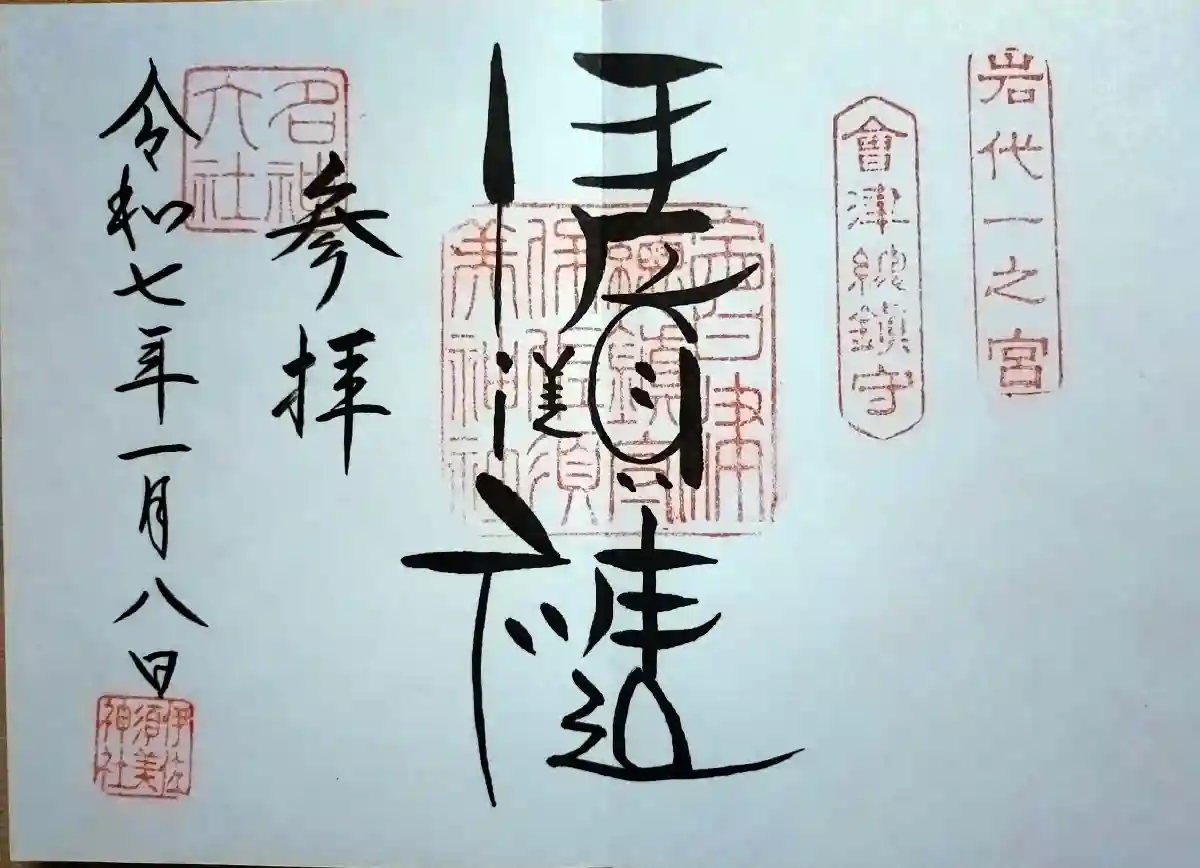 岩代一之宮
會津總鎮守
會津
總鎮宮
伊佐須
美神社
参拝
名神
大社
令和七年一月八日
伊佐
須美
神社